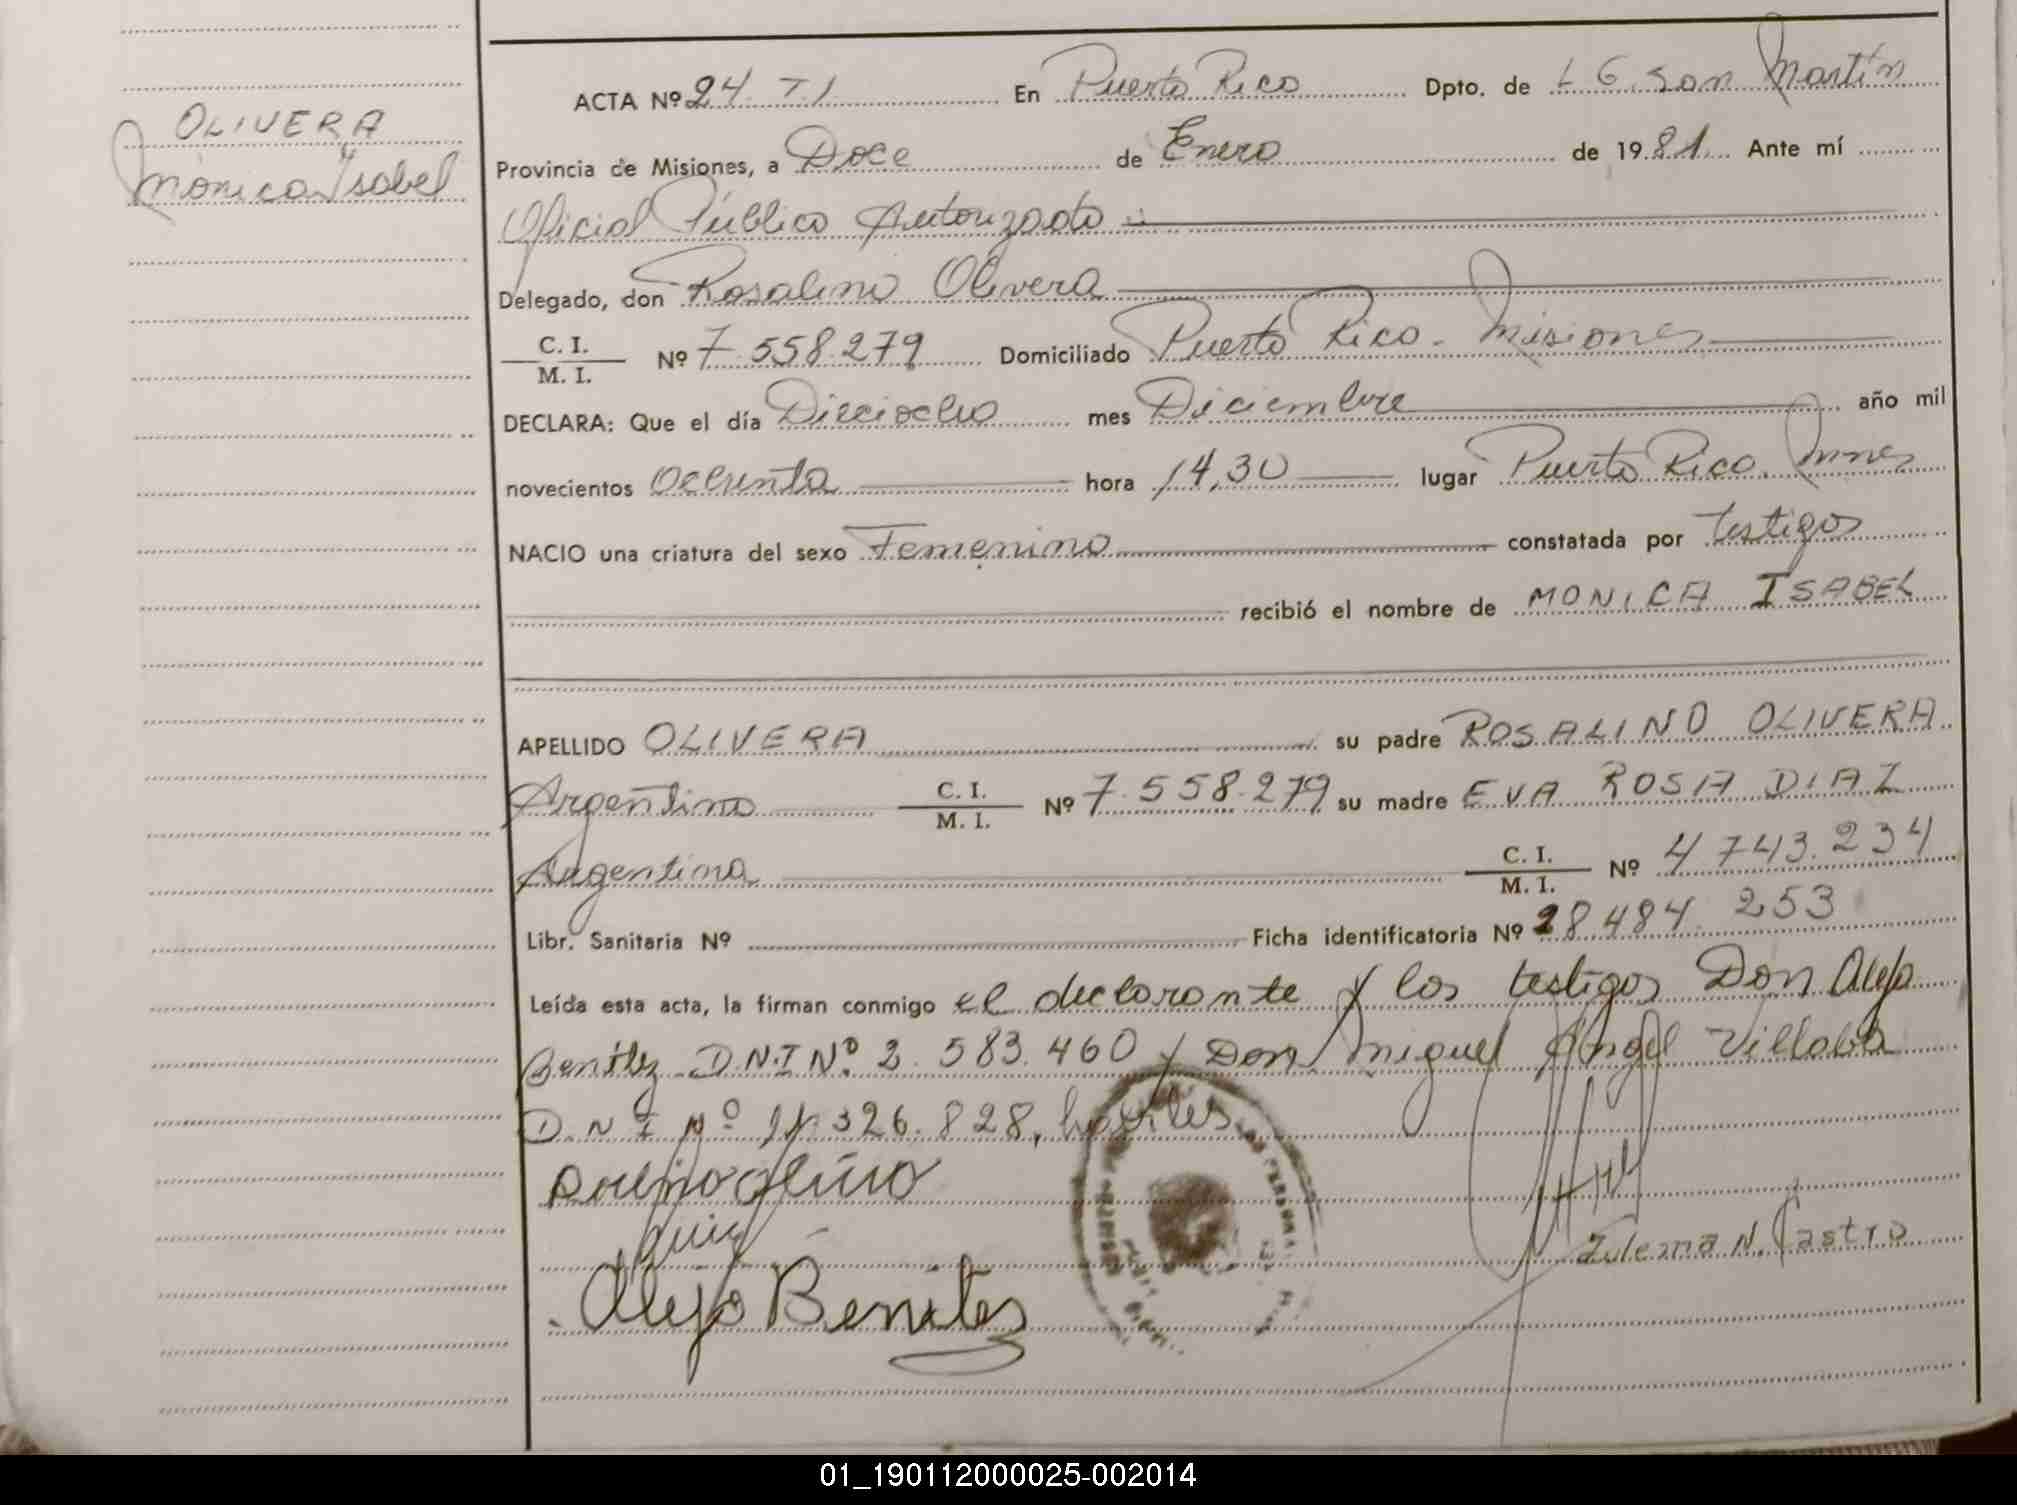 OLIVERA
Mónica Isabel
ACTA Nº 24. T.I En Puerto Rico Dpto. de L G. San Martín
Provincia de Misiones, a Doce de Enero de 1981. Ante mí
Oficial Público Autorizado
Delegado, don Rosalino Olivera
C. I.
M. I. Nº 7.558.279 Domiciliado Puerto Rico - Misiones
DECLARA: Que el día Dieciocho mes Diciembre año mil
novecientos Ochenta hora 14,30 lugar Puerto Rico. Mnes
NACIO una criatura del sexo Femenino constatada por testigos
recibió el nombre de MONICA ISABEL
APELLIDO OLIVERA su padre ROSALINO OLIVERA
Argentino C. I. M. I. Nº 7.558.279 su madre EVA ROSA DIAZ
Argentina C. I. M. I. Nº 4 743.234
Libr. Sanitaria Nº Ficha identificatoria Nº 28 484. 253
Leída esta acta, la firman conmigo el declarante y los testigos Don Alejo
Benítez D.N.I Nº 2.583.460 y Don Miguel Angel Villalba
D.N I Nº 326.828, hábiles.
Alejo Benitez
Zulema N. Castro
01_190112000025-002014